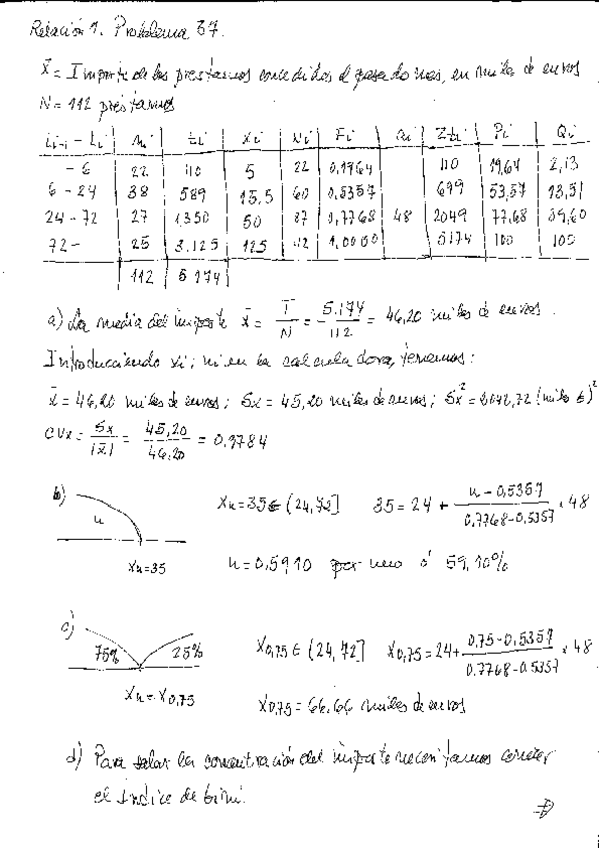 Relación 1. Problema 37.
X = Importe de los préstamos concedidos el pasado mes, en miles de euros
N = 112 préstamos
Li-1 - Li ni ti xi Ni Fi ai Σti Pi Qi
- 6 22 110 5 22 0,1964 110 19,64 2,13
6 - 24 38 589 15,5 60 0,5357 699 53,57 13,51
24 - 72 27 1.350 50 87 0,7768 48 2049 77,68 39,60
72 - 25 3.125 125 112 1,0000 5174 100 100
112 5174
a) La media del importe x̄ = T/N = 5.174/112 = 46,20 miles de euros.
Introduciendo xi; ni en la calculadora, tenemos:
x̄ = 46,20 miles de euros; Sx = 45,20 miles de euros; Sx² = 2042,72 (miles €)²
CVx = Sx/|x̄| = 45,20/46,20 = 0,9784
b) u Xu = 35 ∈ (24,72] 35 = 24 + (u - 0,5357)/(0,7768 - 0,5357) · 48
Xu = 35 u = 0,5910 por uno ó 59,10%
c) 75% 25% X0,75 ∈ (24,72] X0,75 = 24 + (0,75 - 0,5357)/(0,7768 - 0,5357) × 48
Xu = X0,75 X0,75 = 66,66 miles de euros
d) Para la concentración del importe necesitamos conocer
el índice de Gini.